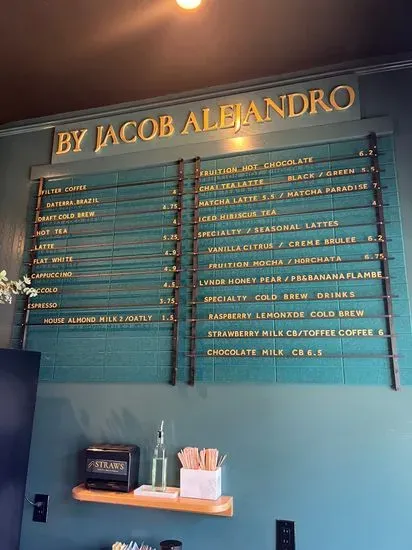 BY JACOB ALEJANDRO
FILTER COFFEE 4
DATERRA.BRAZIL
DRAFT COLD BREW 4.75
HOT TEA 4
LATTE 5.25
FLAT WHITE 4.9
CAPPUCCINO 4.9
CCOLO 4.5
ESPRESSO 3.75
HOUSE ALMOND MILK 2/OATLY 1.5
FRUITION HOT CHOCOLATE 6.2
CHAI TEA LATTE BLACK / GREEN 5.5
MATCHA LATTE 5.5 / MATCHA PARADISE 7
ICED HIBISCUS TEA 4
SPECIALTY / SEASONAL LATTES
VANILLA CITRUS / CREME BRULEE 6.2
FRUITION MOCHA / HORCHATA 6.75
LVNDR HONEY PEAR / PB&BANANA FLAMBE
SPECIALTY COLD BREW DRINKS
RASPBERRY LEMONADE COLD BREW
STRAWBERRY MILK CB/TOFFEE COFFEE 6
CHOCOLATE MILK CB 6.5
STRAWS